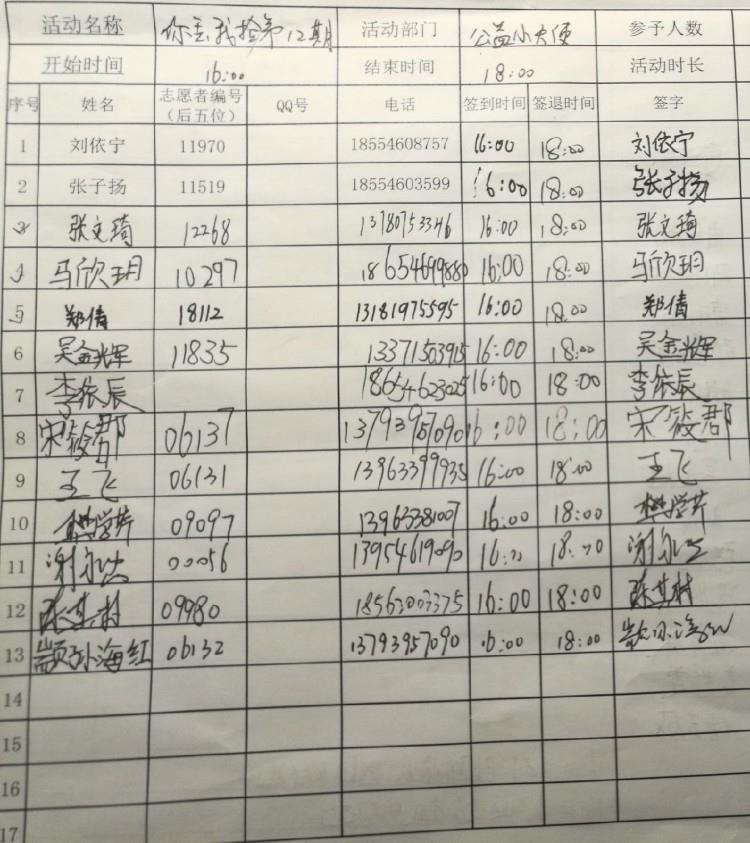 活动名称 你丢我捡第12期 活动部门 公益小天使 参予人数
开始时间 16:00 结束时间 18:00 活动时长
序号 姓名 志愿者编号（后五位） QQ号 电话 签到时间 签退时间 签字
1 刘依宁 11970 18554608757 16:00 18:00 刘依宁
2 张子扬 11519 18554603599 16:00 18:00 张子扬
3 张文琦 12268 13780753346 16:00 18:00 张文琦
4 马欣玥 10297 18654699880 16:00 18:00 马欣玥
5 郑倩 18112 13181975595 16:00 18:00 郑倩
6 吴金光军 11835 13371503915 16:00 18:00 吴金光军
7 李依辰 18654623025 16:00 18:00 李依辰
8 宋筱郡 06137 13793957090 16:00 18:00 宋筱郡
9 王飞 06131 13963399935 16:00 18:00 王飞
10 樊学芹 09097 13963381007 16:00 18:00 樊学芹
11 00056 13954619090 16:00 18:00
12 陈其村 09980 18563003375 16:00 18:00 陈其村
13 颛孙海红 06132 13793957090 16:00 18:00 颛孙海红
14
15
16
17